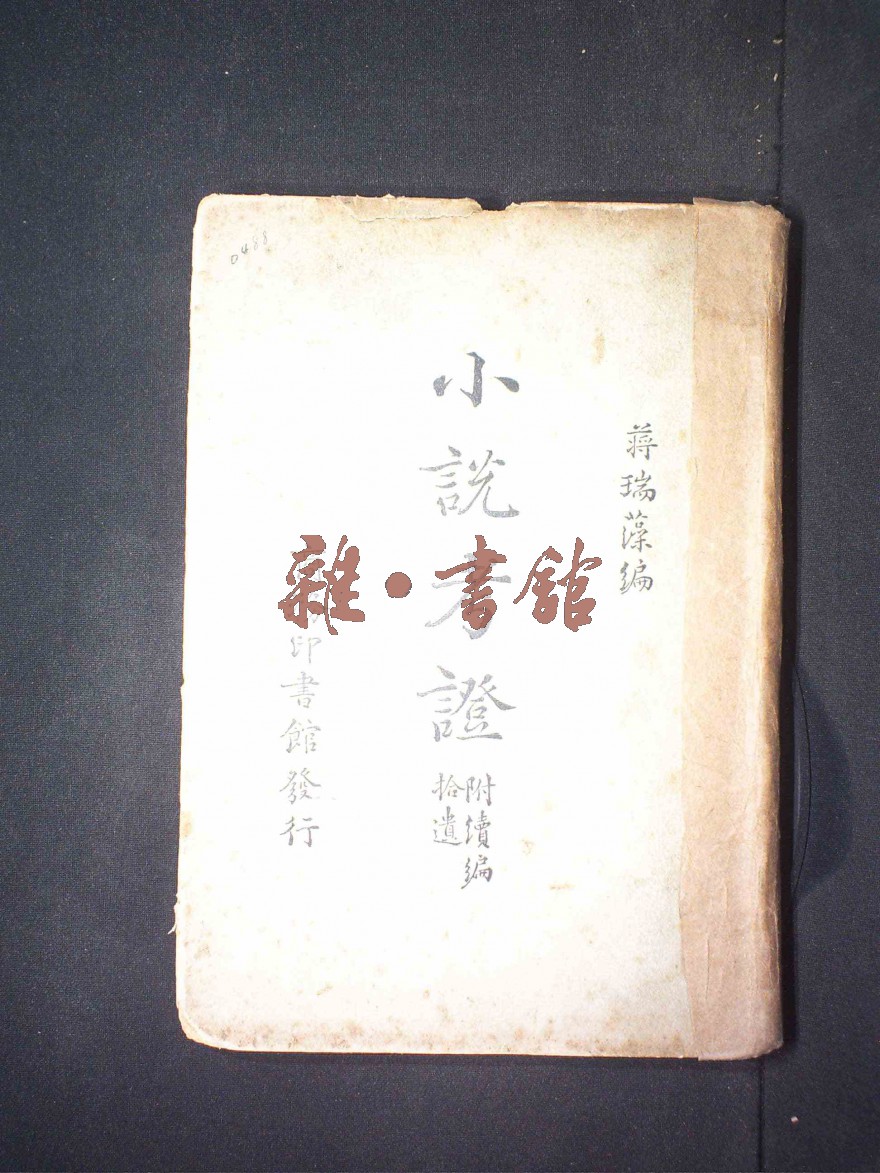 0488
蔣瑞藻編
小說考證
附續編
拾遺
印書館發行
雜·書館